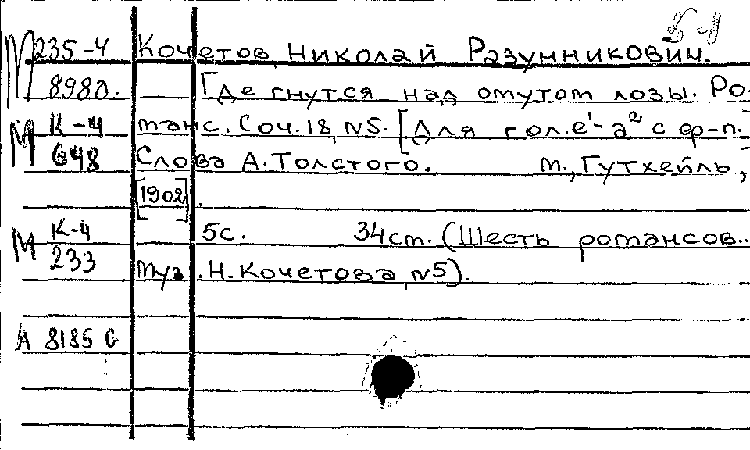 М 235-4 Кочетов, Николай Разумникович.
8980. [Где гнутся над омутом лозы. Ро-
М К-4 манс. Соч. 18, №5. [Для гол. e¹-a² с ф-п.]
648 Слова А. Толстого. М., Гутхейль,
[1902].
М К-4 5с. 34см. (Шесть романсов..
233 муз. Н. Кочетова, №5).
А 8185 G